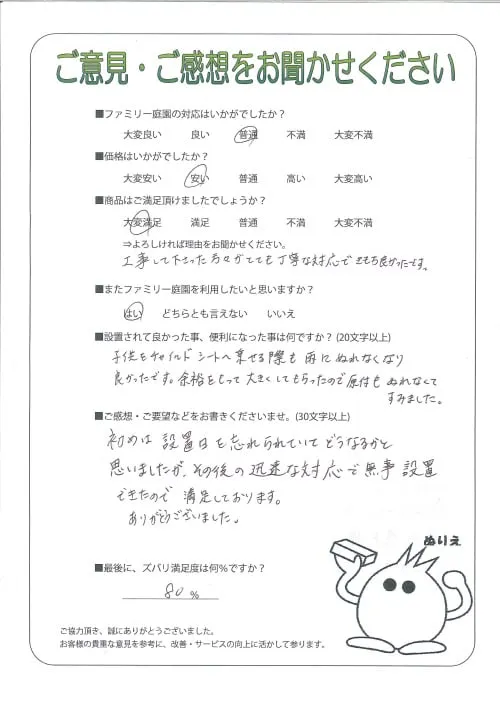 ご意見・ご感想をお聞かせください
■ファミリー庭園の対応はいかがでしたか？
大変良い 良い 普通 不満 大変不満
■価格はいかがでしたか？
大変安い 安い 普通 高い 大変高い
■商品はご満足頂けましたでしょうか？
大変満足 満足 普通 不満 大変不満
⇒よろしければ理由をお聞かせください。
工事して下さった方々がとても丁寧な対応できもち良かったです。
■またファミリー庭園を利用したいと思いますか？
はい どちらとも言えない いいえ
■設置されて良かった事、便利になった事は何ですか？(20文字以上)
子供をチャイルドシートへ乗せる際も雨にぬれなくなり
良かったです。余裕をもって大きくしてもらったので原付もぬれなくて
すみました。
■ご感想・ご要望などをお書きくださいませ。(30文字以上)
初めは設置日を忘れられていてどうなるかと
思いましたが、その後の迅速な対応で無事設置
できたので満足しております。
ありがとうございました。
ぬりえ
■最後に、ズバリ満足度は何％ですか？
80 %
ご協力頂き、誠にありがとうございました。
お客様の貴重な意見を参考に、改善・サービスの向上に活かして参ります。